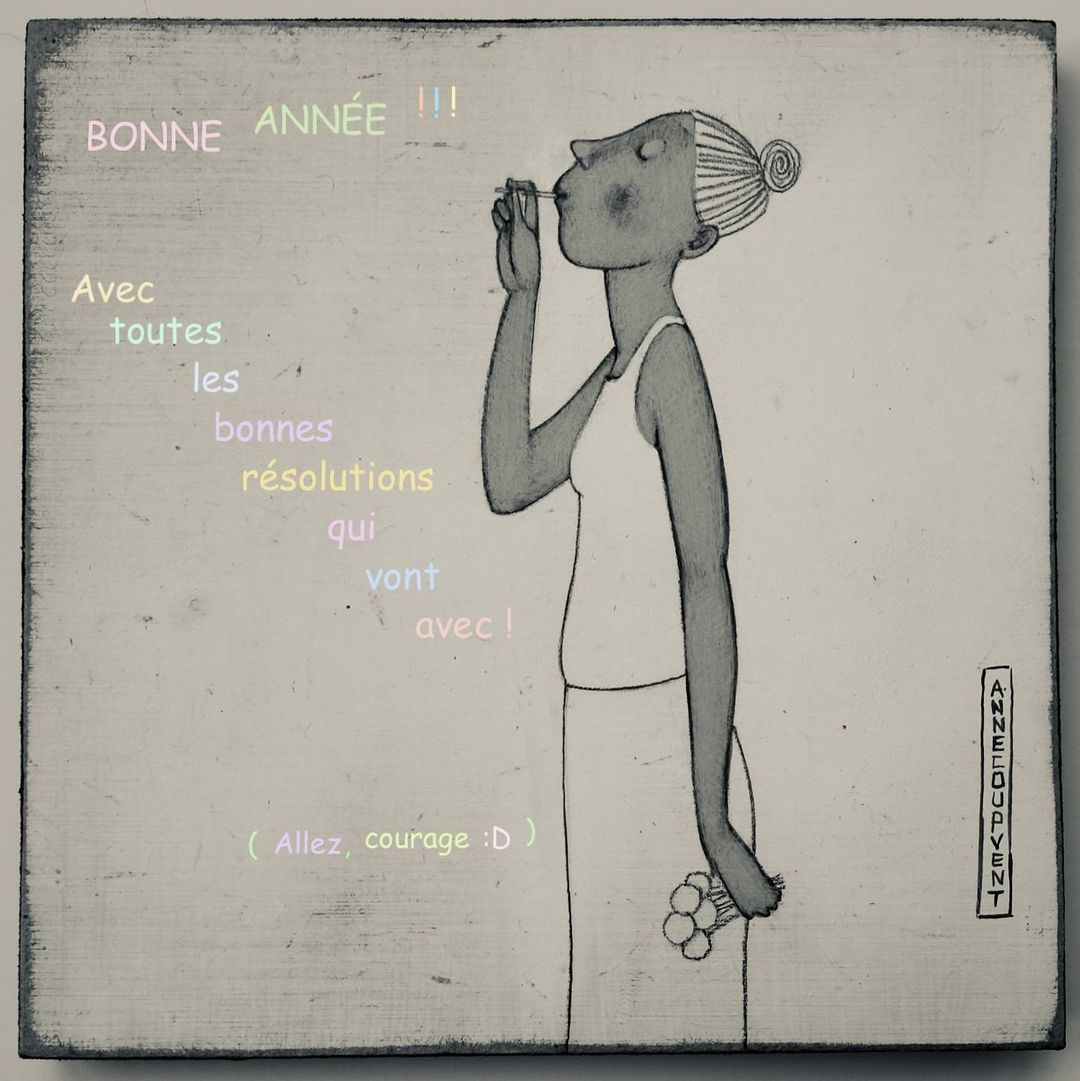 BONNE ANNÉE !!!
Avec
toutes
les
bonnes
résolutions
qui
vont
avec !
( Allez, courage :D )
ANNECOUPVENT